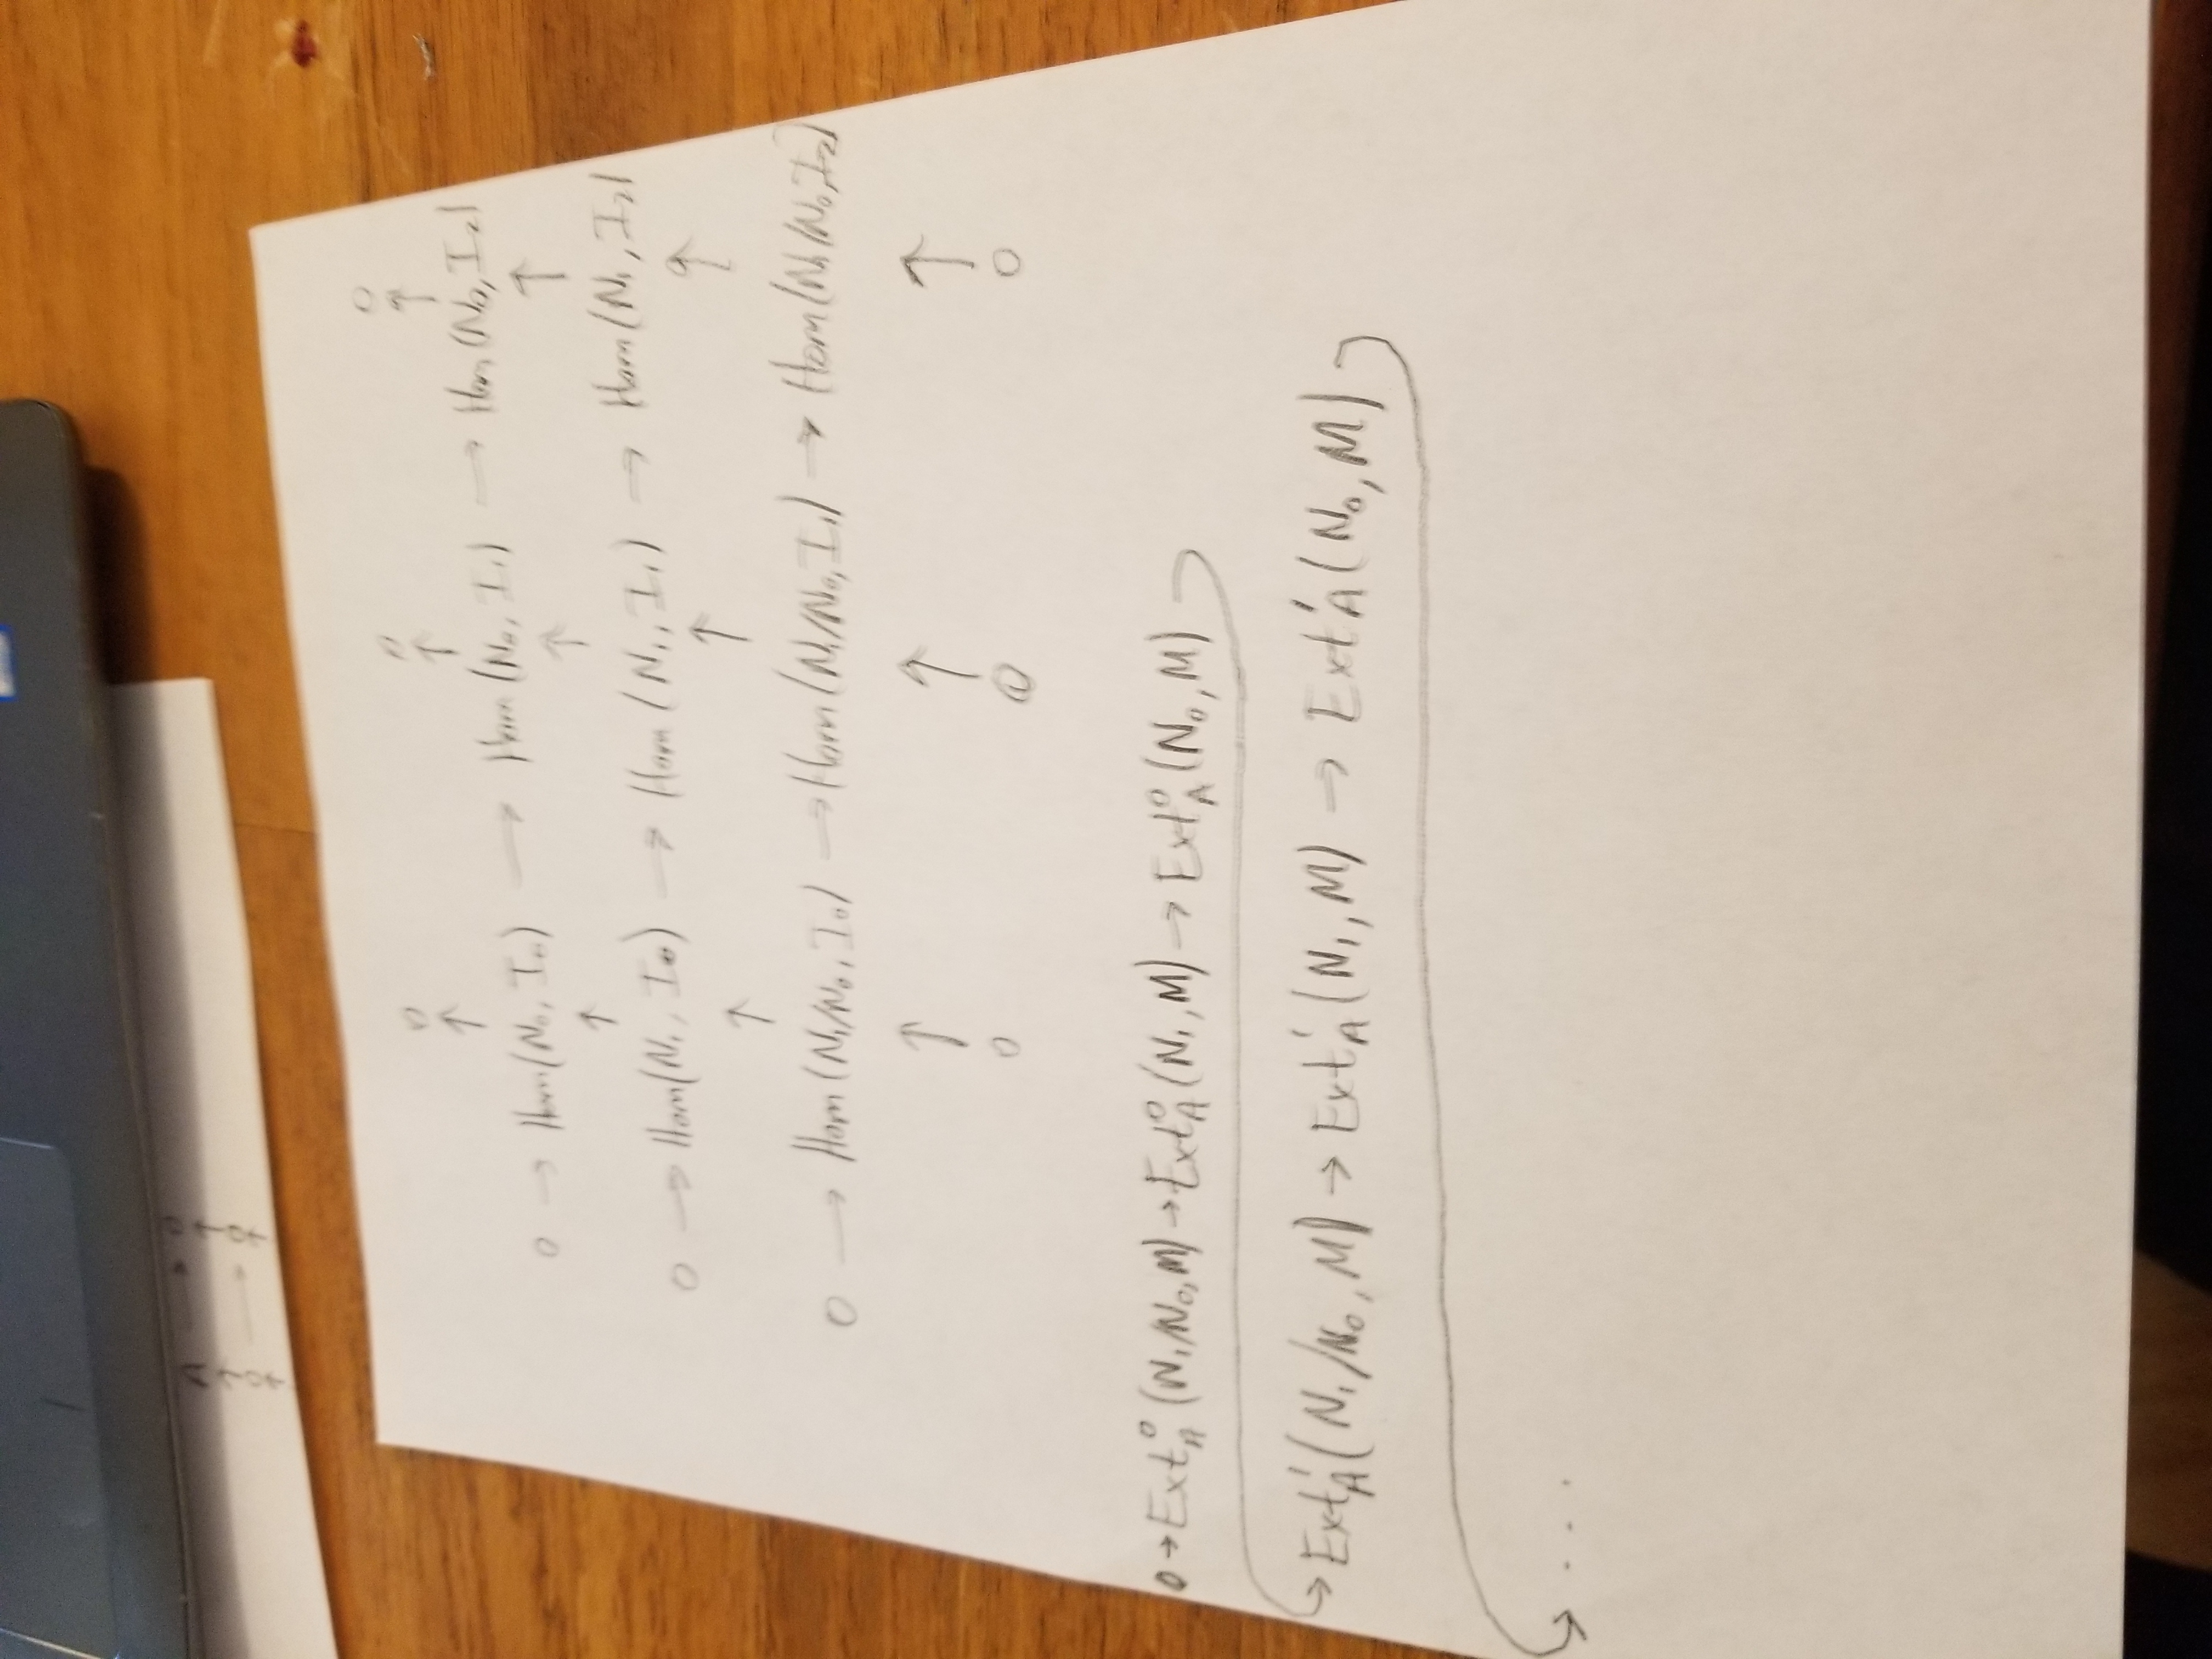 A → 0
↑ ↑
0 → 0
↑ ↑
0 0 0
↑ ↑ ↑
0 → Hom(N₀, I₀) → Hom(N₀, I₁) → Hom(N₀, I₂)
↑ ↑ ↑
0 → Hom(N₁, I₀) → Hom(N₁, I₁) → Hom(N₁, I₂)
↑ ↑ ↑
0 → Hom(N₁/N₀, I₀) → Hom(N₁/N₀, I₁) → Hom(N₁/N₀, I₂)
↑ ↑ ↑
0 0 0
0 → Ext⁰_A (N₁/N₀, M) → Ext⁰_A (N₁, M) → Ext⁰_A (N₀, M)
→ Ext¹_A (N₁/N₀, M) → Ext¹_A (N₁, M) → Ext¹_A (N₀, M)
→ ...